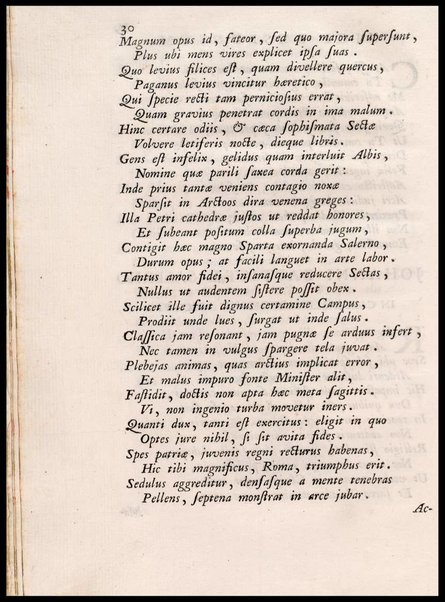 30
Magnum opus id, fateor, ſed quo majora ſuperſunt,
Plus ubi mens vires explicet ipſa ſuas.
Quo levius filices eſt, quam divellere quercus,
Paganus levius vincitur hæretico,
Qui ſpecie recti tam perniciofius errat,
Quam gravius penetrat cordis in ima malum.
Hinc certare odiis, & cæca ſophiſmata Sectæ
Volvere letiferis nocte, dieque libris.
Gens eſt infelix, gelidus quam interluit Albis,
Nomine quæ parili ſaxea corda gerit:
Inde prius tantæ veniens contagio noxæ
Sparſit in Arctoos dira venena greges:
Illa Petri cathedræ juſtos ut reddat honores,
Et ſubeant poſitum colla ſuperba jugum,
Contigit hæc magno Sparta exornanda Salerno,
Durum opus; at facili languet in arte labor.
Tantus amor fidei, inſanaſque reducere Sectas,
Nullus ut audentem ſiſtere poſſit obex.
Scilicet ille fuit dignus certamine Campus,
Prodiit unde lues, ſurgat ut inde ſalus.
Claſſica jam reſonant, jam pugnæ ſe arduus inſert,
Nec tamen in vulgus ſpargere tela juvat.
Plebejas animas, quas arctius implicat error,
Et malus impuro fonte Miniſter alit,
Faſtidit, doctis non apta hæc meta ſagittis.
Vi, non ingenio turba movetur iners.
Quanti dux, tanti eſt exercitus: eligit in quo
Optes jure nihil, ſi ſit avita fides.
Spes patriæ, juvenis regni recturus habenas,
Hic tibi magnificus, Roma, triumphus erit.
Sedulus aggreditur, denſaſque a mente tenebras
Pellens, ſeptena monſtrat in arce jubar.
Ac-